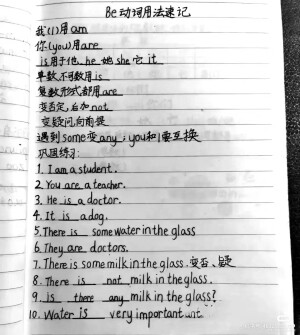 Be动词用法速记
我(I)用am
你(you)用are
is用于他he 她she它it
单数,不可数用is
复数形式都用are
变否定,后加not
变疑问,向前提
遇到some变any;you和I要互换
巩固练习:
1. I am a student.
2. You are a teacher.
3. He is a doctor.
4. It is a dog.
5. There is some water in the glass
6. They are doctors.
7. There is some milk in the glass. 变否、疑
8. There is not milk in the glass.
9. is there any milk in the glass?
10. Water is very important